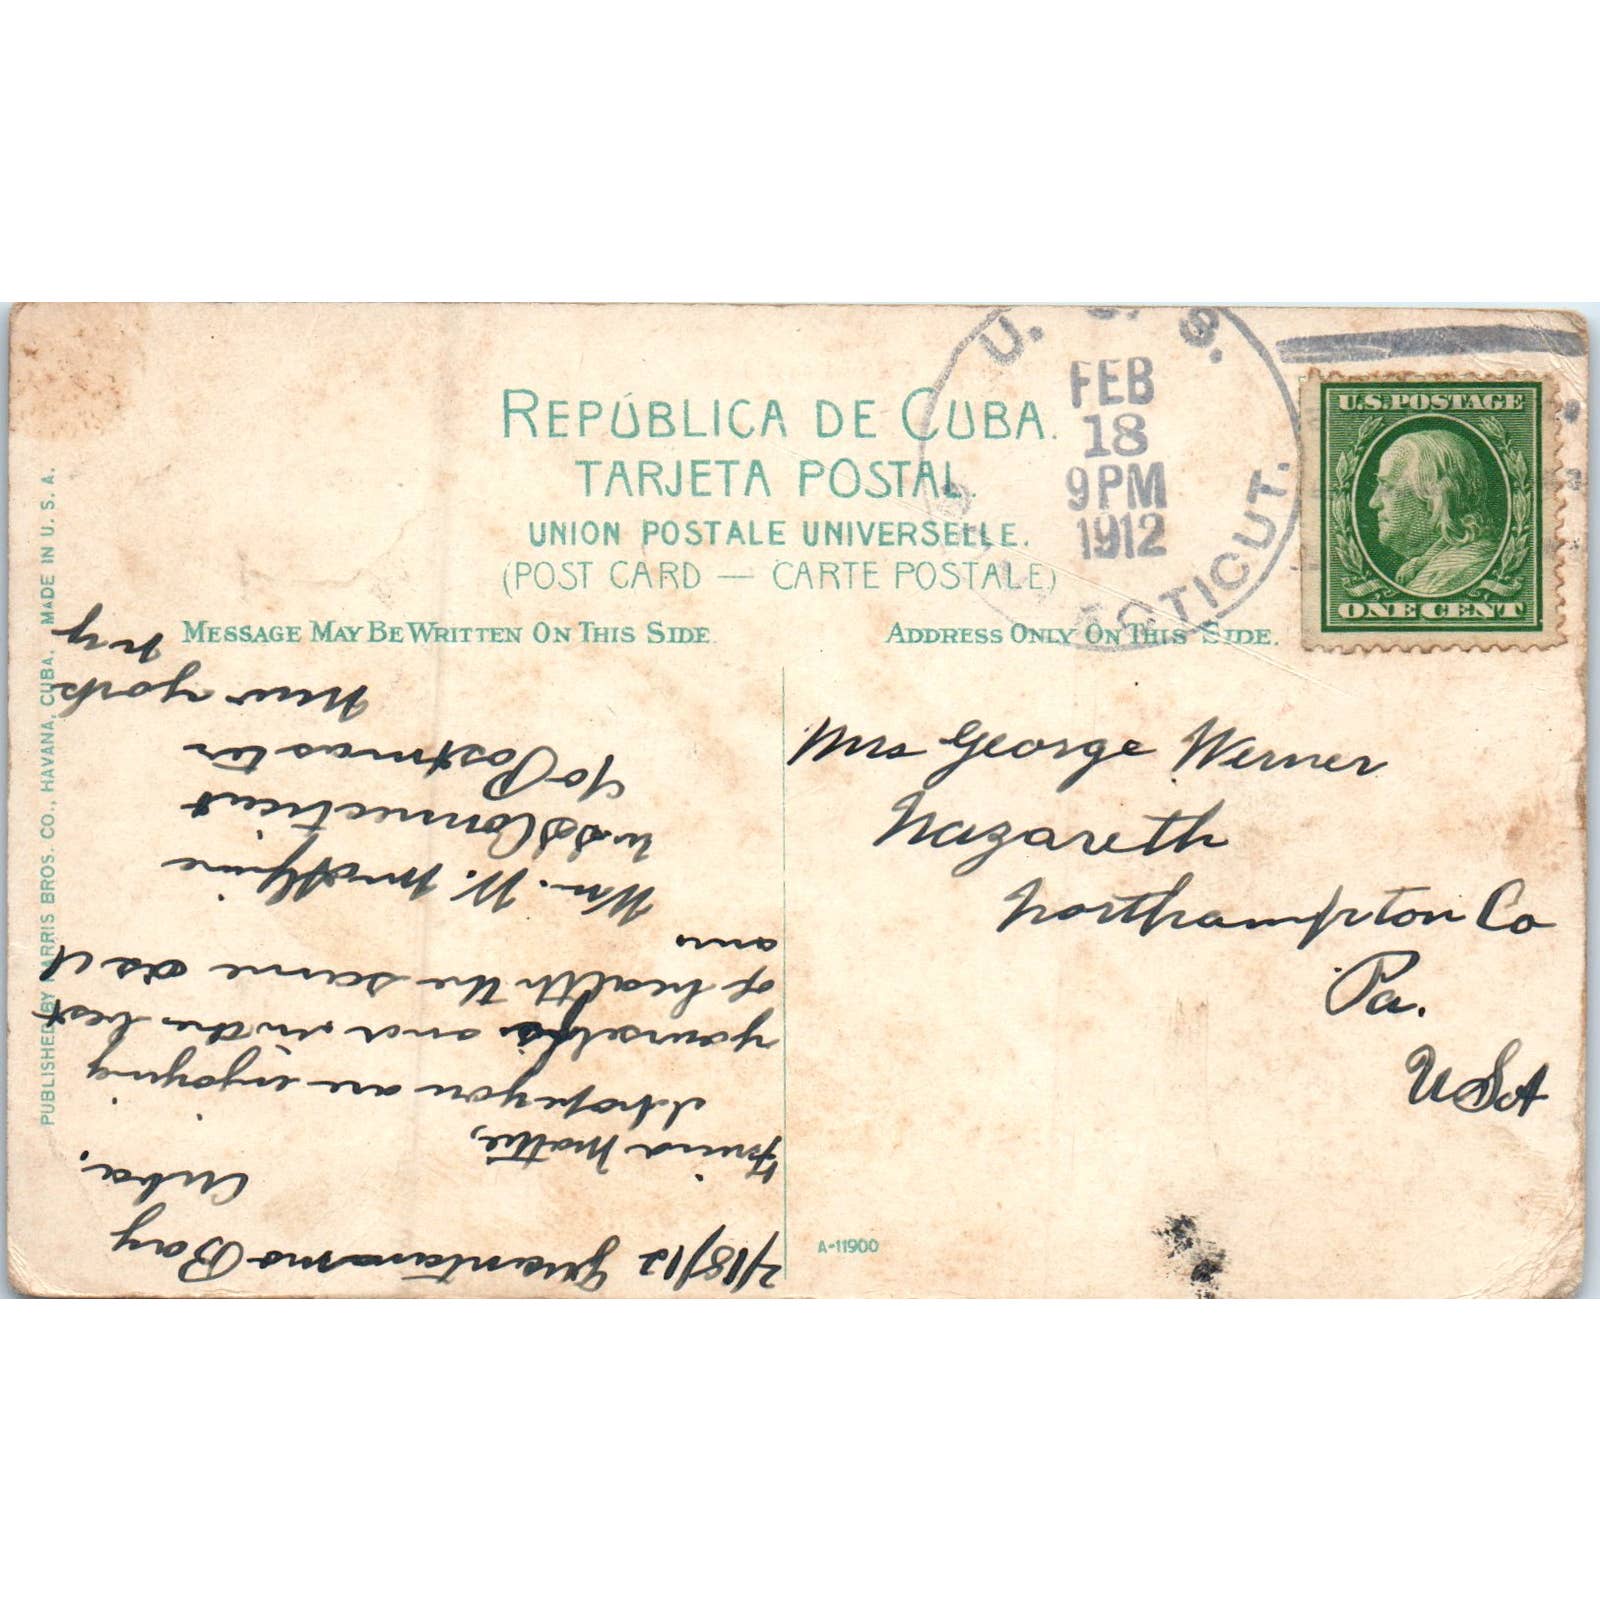 REPÚBLICA DE CUBA.
TARJETA POSTAL.
UNION POSTALE UNIVERSELLE.
(POST CARD — CARTE POSTALE)
MESSAGE MAY BE WRITTEN ON THIS SIDE.
ADDRESS ONLY ON THIS SIDE.
U. S. S.
FEB
18
9 PM
1912
CTICUT.
U.S. POSTAGE
ONE CENT
Mrs George Werner
Nazareth
Northampton Co
Pa.
USA
2/18/12 Guantanamo Bay
Cuba.
Friend Mattie,
I hope you are enjoying
yourself and in the best
of health the same as it
Wm. W.
USS Connecticut
c/o Postmaster
New york
ny
PUBLISHED BY HARRIS BROS. CO., HAVANA, CUBA. MADE IN U. S. A.
A-11900